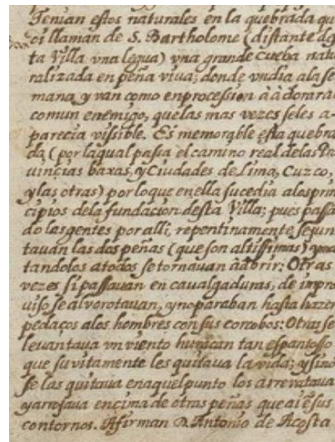 Tenian estos naturales en la quebrada q
oi llaman de S. Bartholome (distante des
ta Villa vna legua) vna grande Cueba natu
ralizada en peña viua; donde vn dia a la se
mana, y van como en procession à adorar a
comun enemigo, que las mas vezes se les a-
parecia vissible. Es memorable esta quebra
da (por la qual passa el camino real de las Pro
uincias baxas, y Ciudades de Lima, Cuzco,
y las otras) por lo que en ella sucedia a los prin
cipios de la fundacion desta Villa; pues passan
do las gentes por alli, repentinamente se jun
tauan las dos peñas (que son altissimas) y ma
tandolos a todos se tornauan à abrir: Otras
vezes si passauan en caualgaduras, de impro
uiso se alvorotauan, y no paraban hasta hazer
pedaços a los hombres con sus corcobos: Otras se
leuantaua vn viento huracan tan espantoso
que suvitamente les quitaua la vida; y si no
se las quitaua en aquel punto los arrevataua
y arrojaua encima de otras peñas que ai en sus
contornos. Afirman D. Antonio de Acosta